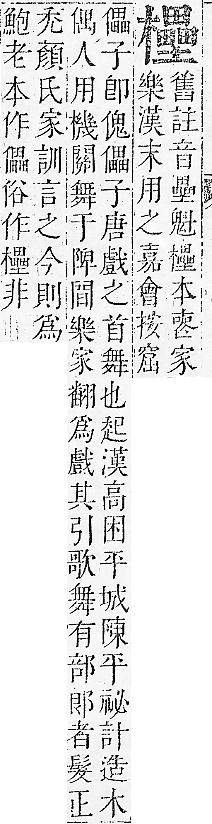 櫑
舊註音壘魁櫑本䘮家
樂漢末用之嘉會按窟
儡子卽傀儡子唐戲之首舞也起漢高困平城陳平祕計造木
偶人用機關舞于陴間樂家翻爲戲其引歌舞有部郞者髮正
禿顏氏家訓言之今則爲
鮑老本作儡俗作櫑非